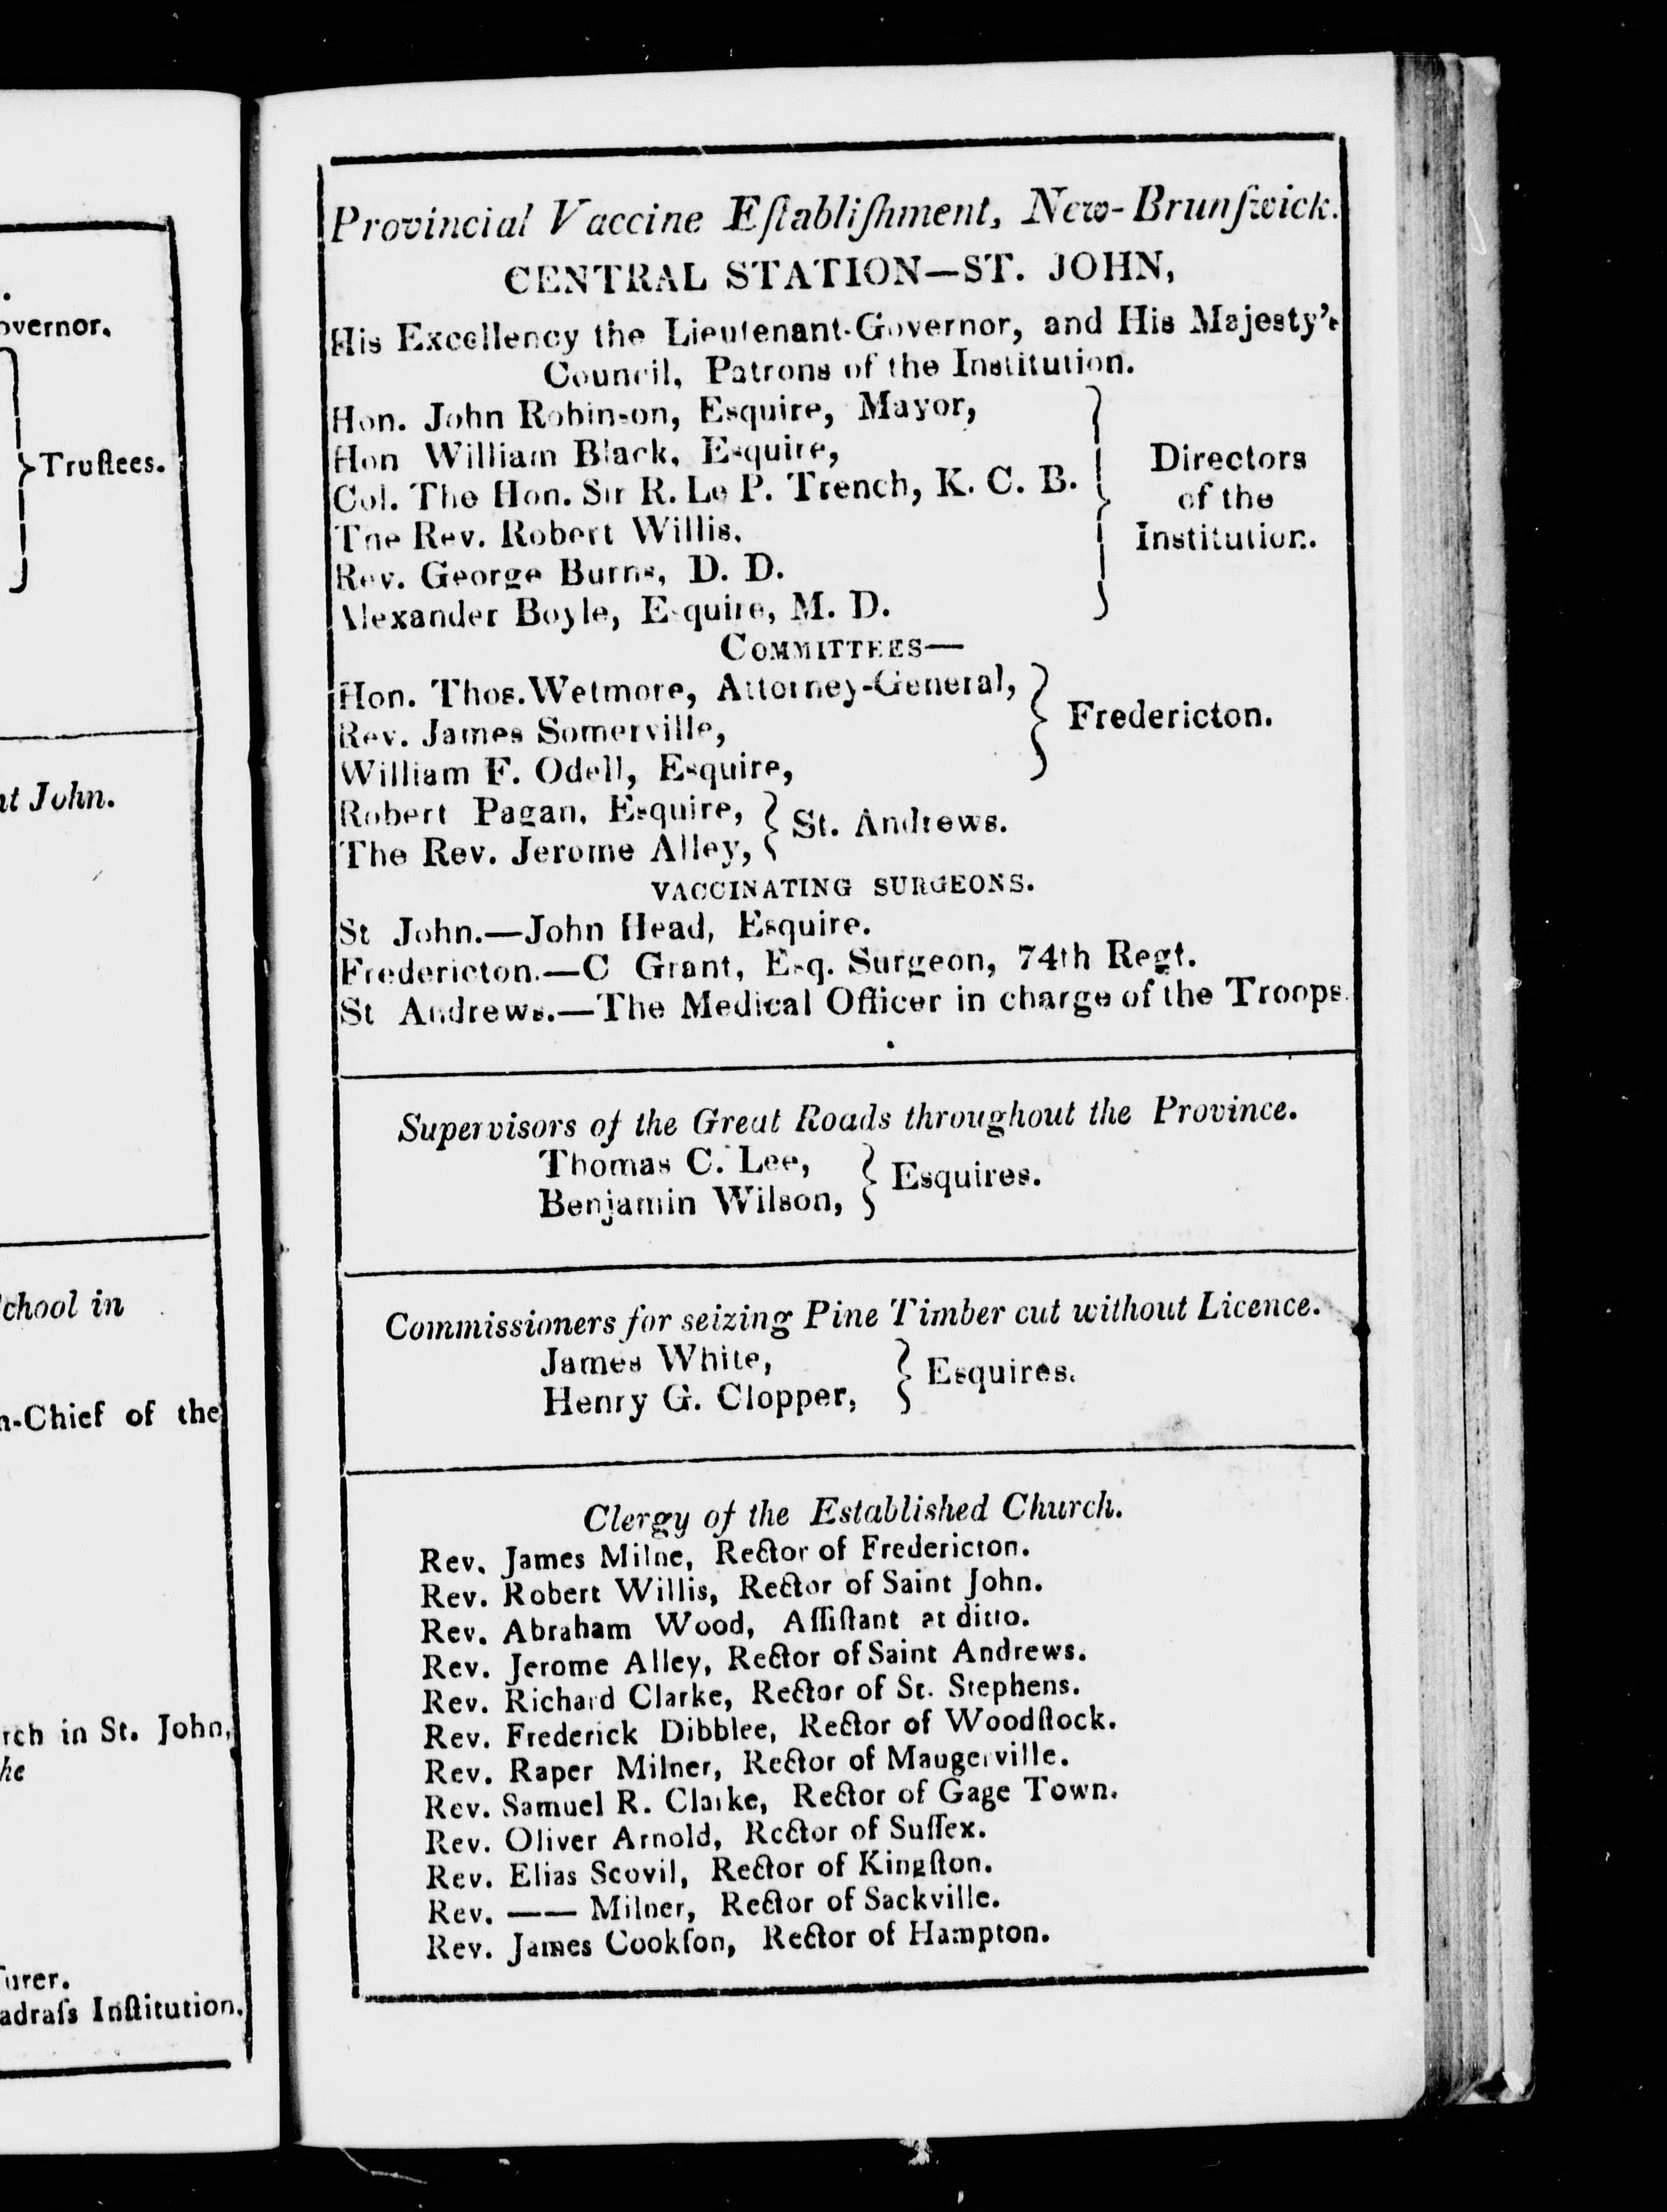 overnor.
Truſtees.
nt John.
School in
n-Chief of the
rch in St. John,
he
ſurer.
adraſs Inſtitution.
Provincial Vaccine Eſtabliſhment, New-Brunſwick.
CENTRAL STATION—ST. JOHN,
His Excellency the Lieutenant-Governor, and His Majesty's
Council, Patrons of the Institution.
Hon. John Robinson, Esquire, Mayor,
Hon William Black, Esquire,
Col. The Hon. Sir R. Le P. Trench, K. C. B.
The Rev. Robert Willis,
Rev. George Burns, D. D.
Alexander Boyle, Esquire, M. D.
Directors
of the
Institution.
COMMITTEES—
Hon. Thos. Wetmore, Attorney-General,
Rev. James Somerville,
William F. Odell, Esquire,
Fredericton.
Robert Pagan, Esquire,
The Rev. Jerome Alley,
St. Andrews.
VACCINATING SURGEONS.
St John.—John Head, Esquire.
Fredericton.—C Grant, Esq. Surgeon, 74th Regt.
St Andrews.—The Medical Officer in charge of the Troops.
Supervisors of the Great Roads throughout the Province.
Thomas C. Lee,
Benjamin Wilson,
Esquires.
Commissioners for seizing Pine Timber cut without Licence.
James White,
Henry G. Clopper,
Esquires.
Clergy of the Established Church.
Rev. James Milne, Rector of Fredericton.
Rev. Robert Willis, Rector of Saint John.
Rev. Abraham Wood, Aſſiſtant at ditto.
Rev. Jerome Alley, Rector of Saint Andrews.
Rev. Richard Clarke, Rector of St. Stephens.
Rev. Frederick Dibblee, Rector of Woodſtock.
Rev. Raper Milner, Rector of Maugerville.
Rev. Samuel R. Clarke, Rector of Gage Town.
Rev. Oliver Arnold, Rector of Suſſex.
Rev. Elias Scovil, Rector of Kingſton.
Rev. —— Milner, Rector of Sackville.
Rev. James Cookſon, Rector of Hampton.